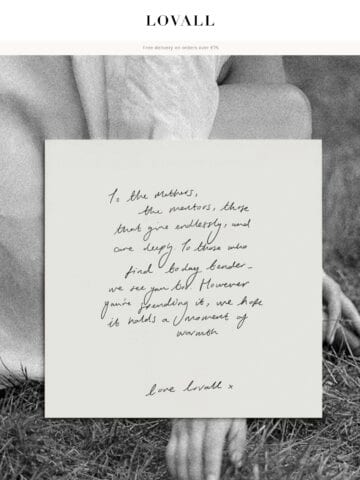 LOVALL
Free delivery on orders over €75
To the mothers,
the mentors, those
that give endlessly, and
care deeply To those who
find today tender -
we see you too. However
you're spending it, we hope
it holds a moment of
warmth
love lovall x